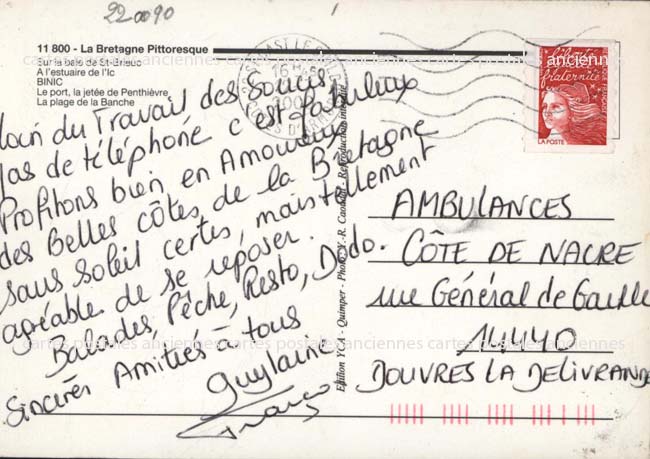 22 0090
11 800 - La Bretagne Pittoresque
Sur la baie de St-Brieuc
A l'estuaire de l'Ic
BINIC
Le port, la jetée de Penthièvre
La plage de la Banche
Loin du Travail des Soucis
Pas de téléphone c'est fabuleux
Profitons bien en Amoureux
des Belles côtes de la Bretagne
sans soleil certes, mais tellement
agréable de se reposer.
Balades, Pêche, Resto, Dodo.
Sincères Amitiés à tous
Guylaine
Edition YCA - Quimper - Photo Y.-R. Caoudal - Reproduction interdite
16 H 45
liberté
fraternité
LA POSTE
AMBULANCES
CÔTE DE NACRE
rue Général de Gaulle
14440
DOUVRES LA DELIVRANDE
anciennes
cartes postales anciennes cartes postales anciennes cartes postales anciennes